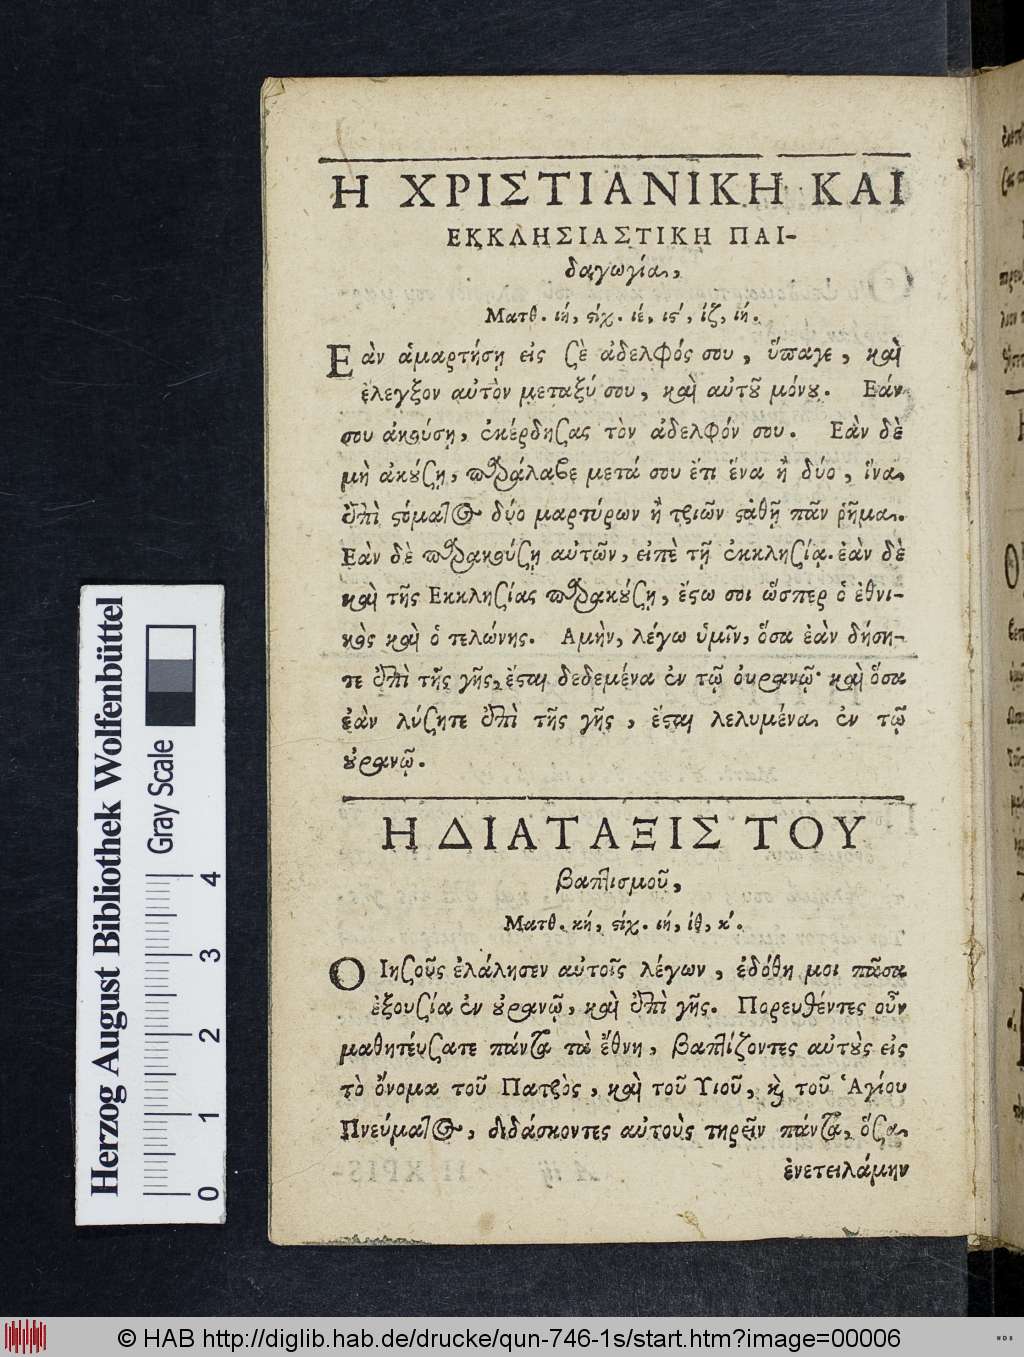 Η ΧΡΙΣΤΙΑΝΙΚΗ ΚΑΙ
ΕΚΚΛΗΣΙΑΣΤΙΚΗ ΠΑΙ-
δαγωγία,
Ματθ. ιή, ϛίχ. ιέ, ιϛ', ίζ, ίή.
Εὰν ἁμαρτήσῃ εἰς σὲ ἀδελφός σου, ὕπαγε, καὶ
ἔλεγξον αὐτὸν μεταξύ σου, καὶ αὐτοῦ μόνου. Εάν
σου ἀκούσῃ, ἐκέρδησας τὸν ἀδελφόν σου. Εὰν δὲ
μὴ ἀκούσῃ, παράλαβε μετά σου ἔτι ἕνα ἢ δύο, ἵνα
ἐπὶ ϛόματος δύο μαρτύρων ἢ τριῶν ϛαθῇ πᾶν ῥῆμα.
Εὰν δὲ παρακούσῃ αὐτῶν, εἰπὲ τῇ ἐκκλησίᾳ. ἐὰν δὲ
καὶ τῆς Εκκλησίας παρακούσῃ, ἔϛω σοι ὥσπερ ὁ ἐθνι-
κὸς καὶ ὁ τελώνης. Αμὴν, λέγω ὑμῖν, ὅσα ἐὰν δήση-
τε ἐπὶ τῆς γῆς, ἔϛαι δεδεμένα ἐν τῷ οὐρανῷ· καὶ ὅσα
ἐὰν λύσητε ἐπὶ τῆς γῆς, ἔϛαι λελυμένα ἐν τῷ
οὐρανῷ.
Η ΔΙΑΤΑΞΙΣ ΤΟΥ
βαπτισμοῦ,
Ματθ. κή, ϛίχ. ιή, ίθ, κ'.
Ο Ιησοῦς ἐλάλησεν αὐτοῖς λέγων, ἐδόθη μοι πᾶσα
ἐξουσία ἐν οὐρανῷ, καὶ ἐπὶ γῆς. Πορευθέντες οὖν
μαθητεύσατε πάντα τὰ ἔθνη, βαπτίζοντες αὐτοὺς εἰς
τὸ ὄνομα τοῦ Πατρὸς, καὶ τοῦ Υιοῦ, κὶ τοῦ Ἁγίου
Πνεύματος, διδάσκοντες αὐτοὺς τηρεῖν πάντα, ὅσα
ἐνετειλάμην
Herzog August Bibliothek Wolfenbüttel
Gray Scale
0 1 2 3 4
© HAB http://diglib.hab.de/drucke/qun-746-1s/start.htm?image=00006